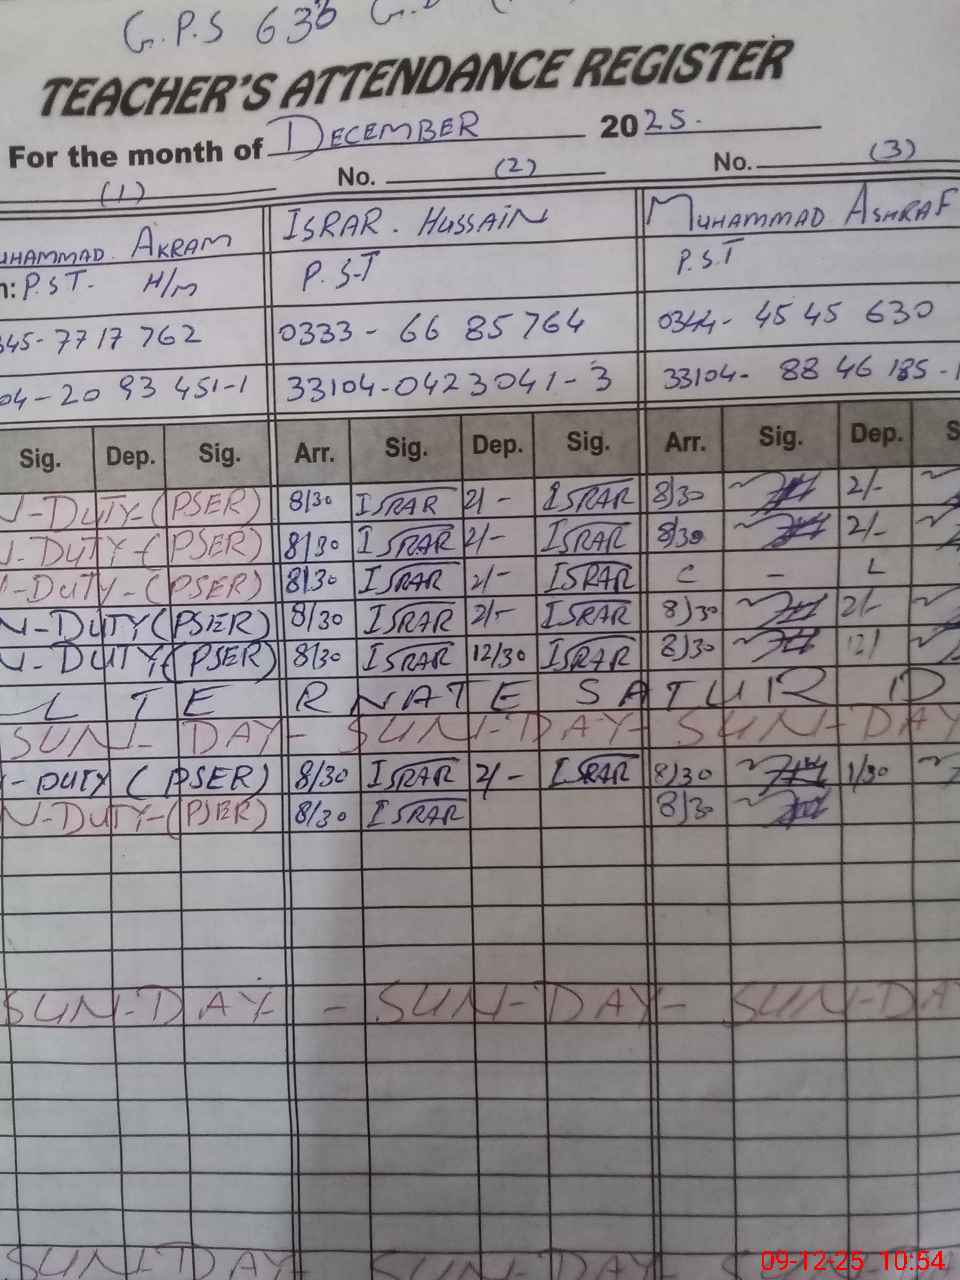 G.P.S 633 G.
TEACHER'S ATTENDANCE REGISTER
For the month of DECEMBER 2025.
(1) No. (2) No. (3)
UHAMMAD. AKRAM ISRAR. HUSSAIN MUHAMMAD ASHRAF
n: P.S.T. H/M P.S.T P.S.T
345-7717762 0333-6685764 0344-4545630
04-2093451-1 33104-0423041-3 33104-8846185-1
Sig. Dep. Sig. Arr. Sig. Dep. Sig. Arr. Sig. Dep. S
N-DUTY-(PSER) 8/30 ISRAR 2/- ISRAR 8/30 2/-
N-DUTY-(PSER) 8/30 ISRAR 2/- ISRAR 8/30 2/-
-DUTY-(PSER) 8/30 ISRAR 2/- ISRAR C - L
N-DUTY(PSER) 8/30 ISRAR 2/- ISRAR 8/30 2/-
N-DUTY(PSER) 8/30 ISRAR 12/30 ISRAR 8/30 12/
LTERNATE SATURD
SUN-DAY- SUN-DAY- SUN-DAY
-DUTY (PSER) 8/30 ISRAR 2/- ISRAR 8/30 1/30
N-DUTY-(PSER) 8/30 ISRAR 8/30
SUN-DAY- - SUN-DAY- SUN-DA
SUN-DAY- SUN-DAY- SUN-DA
09-12-25 10:54